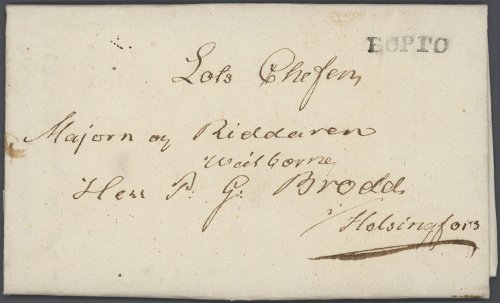 BOPTO
Lots Chefen
Majorn og Riddaren
Wälborne
Herr P. G. Brodd
i/ Helsingfors